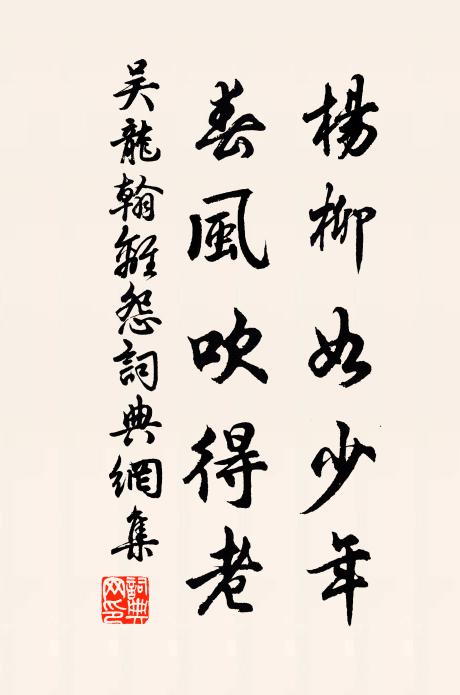 楊柳如少年
春風吹得老
吳龍翰離怨詞典網集
詞典網印